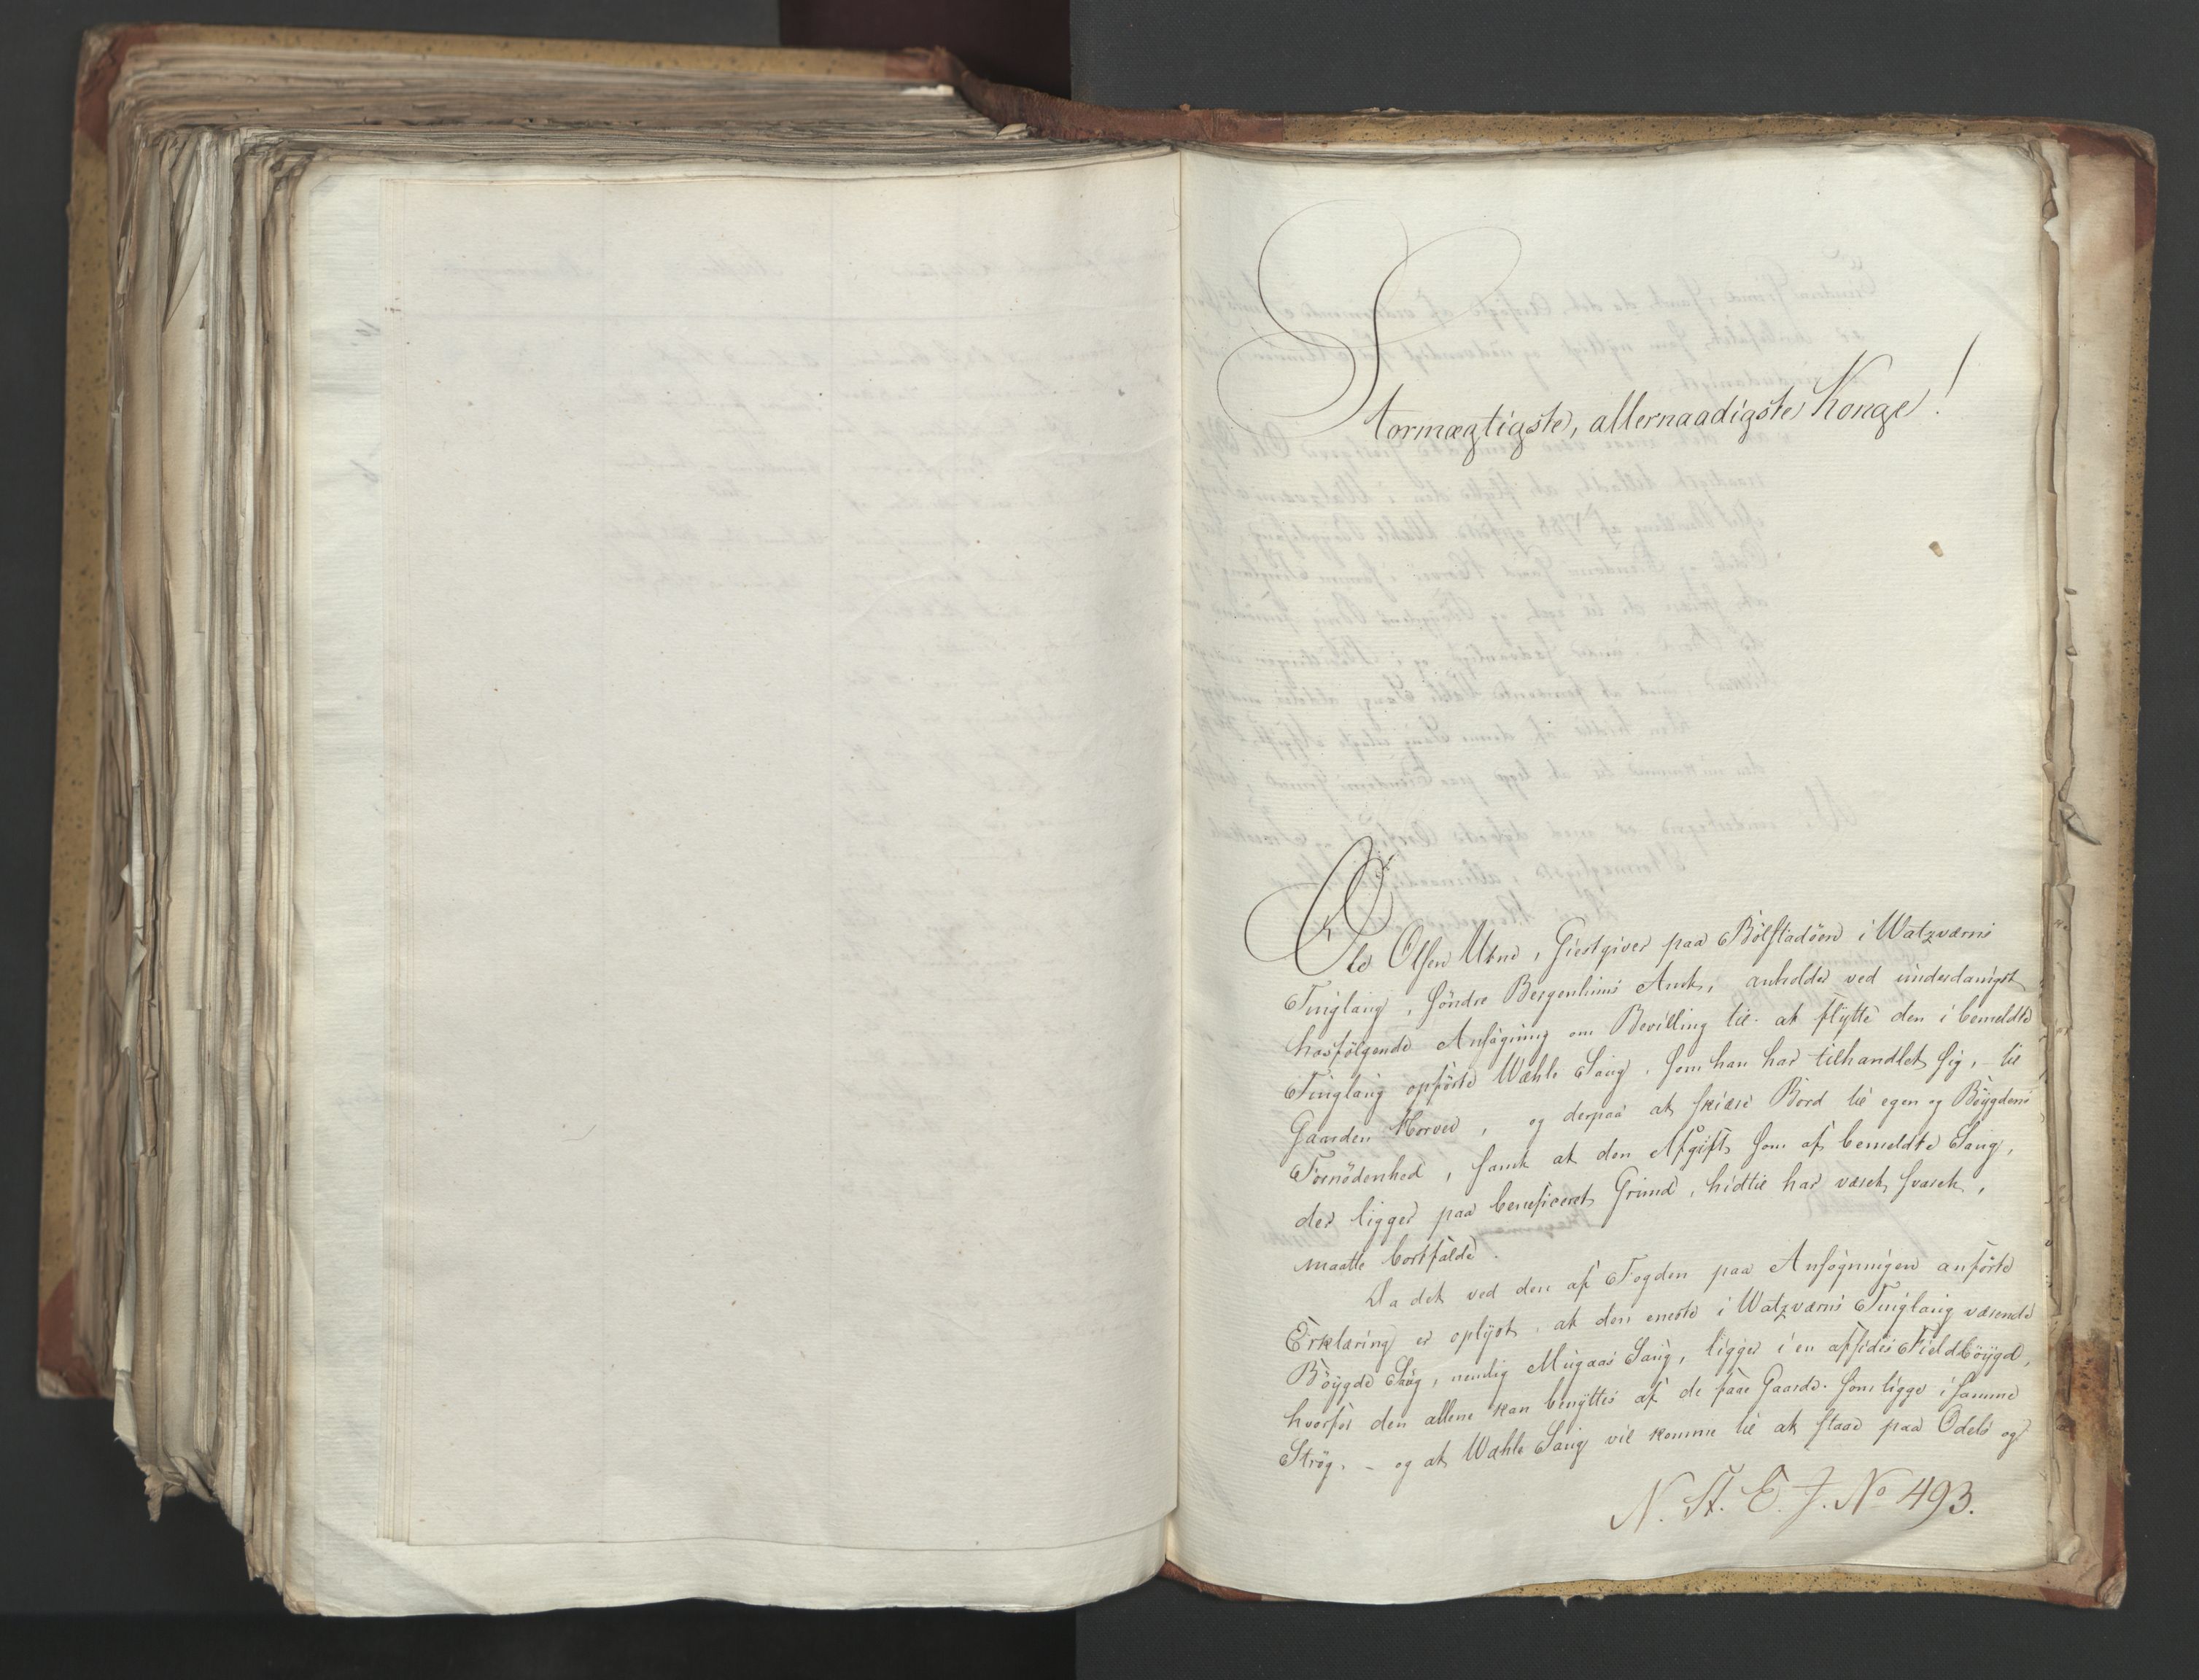 Stormægtigste, allernaadigste Konge!
Ole Olsen Utne, Giestgiver paa Bólstadóen i Watzværns
Tinglaug, Söndre Bergenhuus Amt, anholder ved underdanigst
hosfölgende Ansögning om Bevilling til at flÿtte den i bemeldte
Tinglaug opförte Wæhle Saug, som han har tilhandlet sig, til
Gaarden Horvei, og derpaa at skiære Bord til egen og Böÿgdens
Fornödenhed, samt at den Afgift som af bemeldte Saug,
der ligger paa beneficeret Grund, hidtil har været svaret,
maatte bortfalde.
Da det ved den af Fogden paa Ansögningen anförte
Erklæring er oplÿst, at den eneste i Watzværns Tinglaug værende
Böÿgde Saug, nemlig Mugaas Saug, ligger i en afsides Fieldböÿgd,
hvorfor den allene kan benÿttes af de faae Gaarde som ligge i samme
Strög. – og at Wæhle Saug vil komme til at staae paa Odels og
N. St. E. J. No 493.